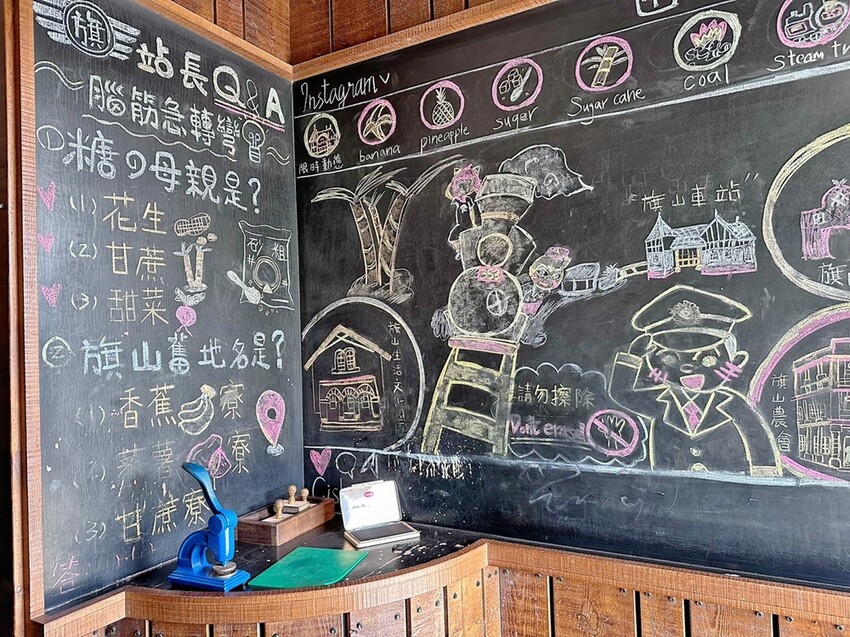 旗
站長Q&A
腦筋急轉彎
① 糖の母親是?
(1) 花生
(2) 甘蔗
(3) 甜菜
② 旗山舊地名是?
(1) 香蕉寮
(2) 蕃薯寮
(3) 甘蔗寮
答
砂糖
Instagram
限時動態
banana
pineapple
suger
Sugar cane
coal
Steam tr
"旗山車站"
旗山生活文化
請勿擦除
Don't erase
旗山農會
旗